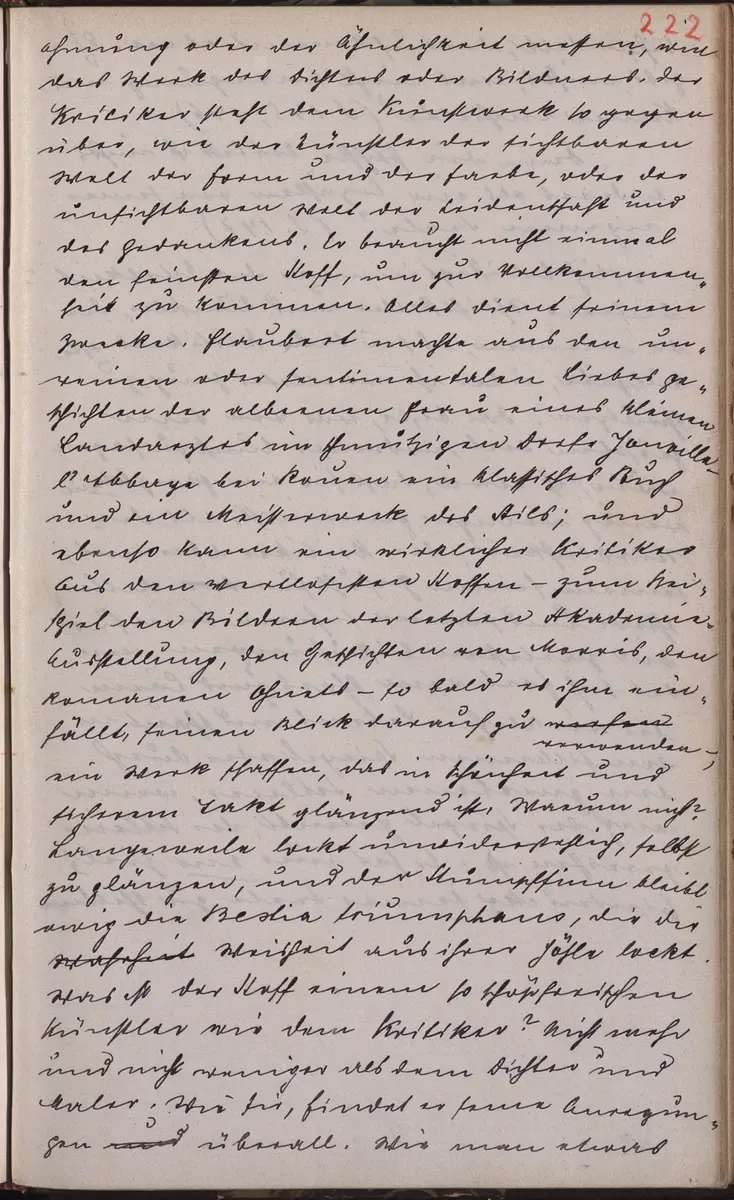 222
ahmung oder der Ähnlichkeit messen, wie
das Werk des Dichters oder Bildners. Der
Kritiker steht dem Kunstwerk so gegen
über, wie der Künstler der sichtbaren
Welt der Form und der Farbe, oder der
unsichtbaren Welt der Leidenschaft und
des Gedankens. Er braucht nicht einmal
den feinsten Stoff, um zur Vollkommen„
heit zu kommen. Alles dient seinem
Zwecke. Flaubert machte aus den un„
reinen oder sentimentalen Liebesge„
schichten der albernen Frau eines kleinen
Landarztes im schmutzigen Dorfe Yonville-
l'Abbaye bei Rouen ein klassisches Buch
und ein Meisterwerk des Stils; und
ebenso kann ein wirklicher Kritiker
aus den wertlosesten Stoffen – zum Bei„
spiel den Bildern der letzten Akademie„
Ausstellung, den Gedichten von Morris, den
Romanen Ohnets – so bald es ihm ein„
fällt, seinen Blick darauf zu werfen
verwenden –,
ein Werk schaffen, das in Schönheit und
sicherem Takt glänzend ist. Warum nicht?
Langeweile lockt unwiderstehlich, selbst
zu glänzen, und der Stumpfsinn bleibt
ewig die Bestia triumphans, die die
Wahrheit Weisheit aus ihrer Höhle lockt.
Was ist der Stoff einem so schöpferischen
Künstler wie dem Kritiker? Nicht mehr
und nicht weniger als dem Dichter und
Maler. Wie sie, findet er seine Anregun„
gen und überall. Wie man etwas